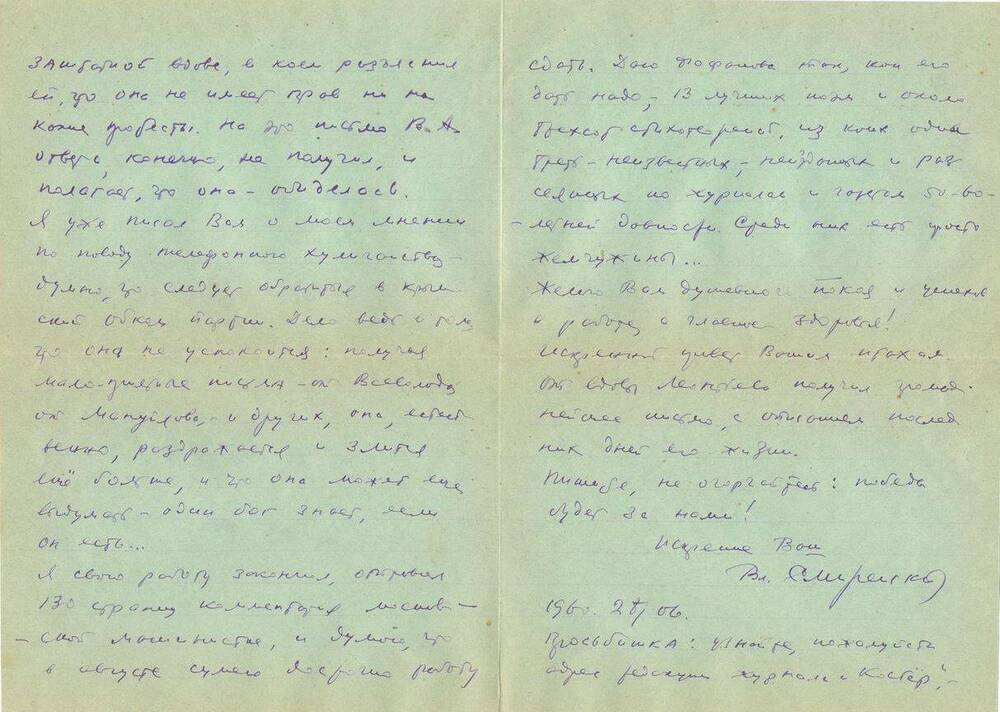 заштатной вдове, в коем разъяснил
ей, что она не имеет прав ни на
какие протесты. На это письмо В. А.
ответа, конечно, не получил, и
полагает, что она – обиделась.
Я уже писал Вам о моем мнении
по поводу телефонного хулиганства –
думаю, что следует обратиться в Крым-
ский обком партии. Дело ведь в том,
что она не успокоится: получая
мало-приятные письма – от Всеволода,
от Мануйлова, и других, она, естест-
венно, раздражается и злится
ещё больше, и что она может ещё
выдумать – один бог знает, если
он есть...
Я свою работу закончил, отправил
130 страниц комментария москов-
– ской машинистке, и думаю, что
в августе сумею досрочно работу
сдать. Даю Фофанова так, как его
дать надо, – 13 лучших поэм и около
трехсот стихотворений, из коих одна
треть – неизвестных, – неизданных и рас-
сеянных по журналам и газетам 50-во-
– летней давности. Среди них есть просто
жемчужины...
Желаю Вам душевного покоя и успехов
в работе, а главное здоровья!
Искренний привет Вашим птахам.
От вдовы Леонтьева получил громад-
нейшее письмо, с описанием послед-
них дней его жизни.
Пишите, не огорчайтесь: победа
будет за нами!
Искренне Ваш
Вл. Смиренский
196 г. 2 06.
Просьбишка: узнайте, пожалуйста
адрес редакции журнала „Костёр“. –